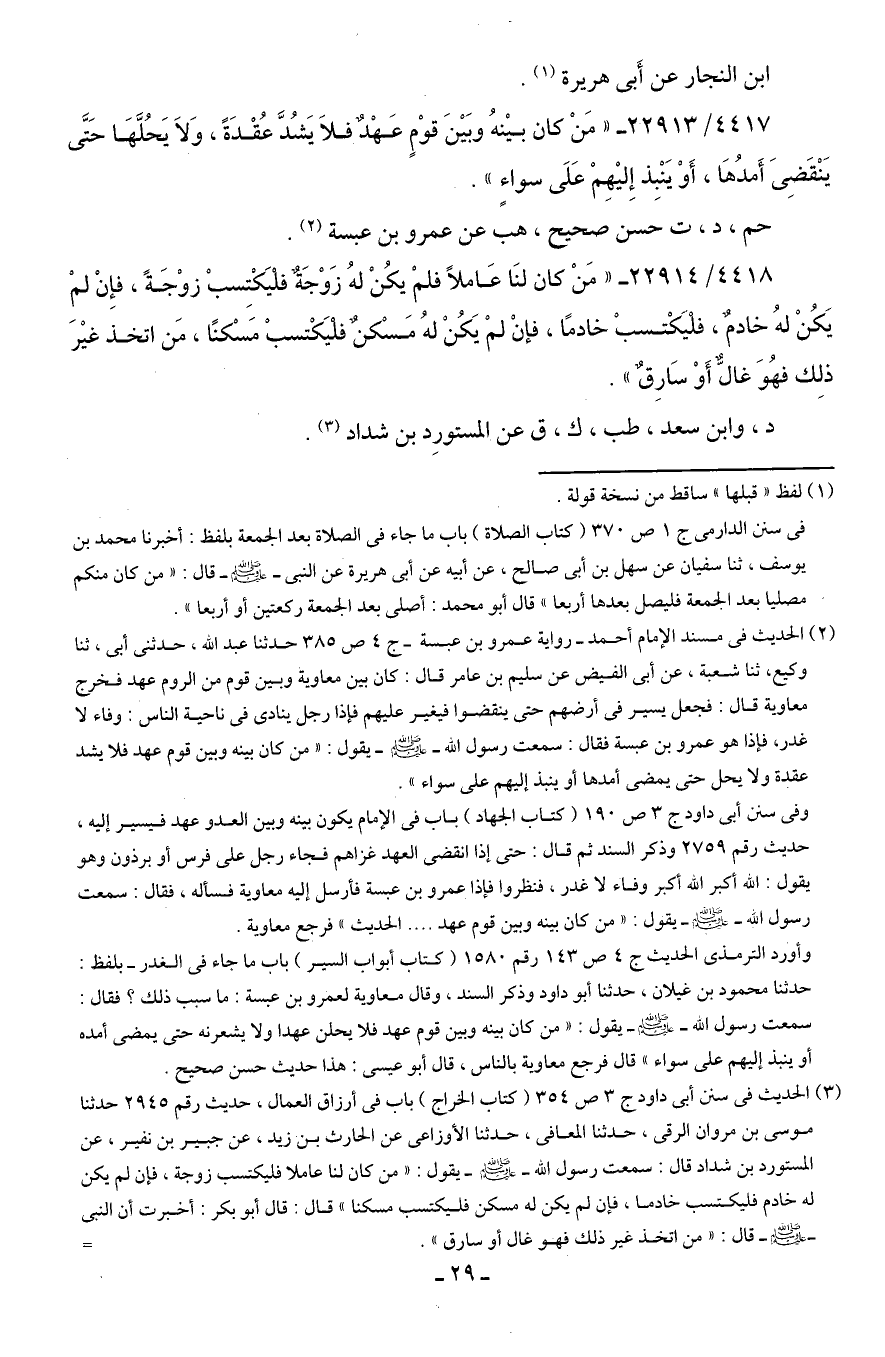 ابن النجار عن أَبى هريرة (١) .
٤٤١٧/ ٢٢٩١٣ـ « مَنْ كان بيْنهُ وبَيْنَ قوْمٍ عَـهْدٌ فـلاَ يَشُدَّ عُقْـدَةً ، وَلاَ يَحُلَّهَـا حَتَّى
يَنْقَضِىَ أَمدُهَا ، أَوْ يَنْبِذ إِليْهِمْ عَلَى سواءٍ » .
حم ، د ، ت حسن صحيح ، هب عن عمرو بن عبسة (٢) .
٤٤١٨/ ٢٢٩١٤ـ « مَنْ كان لنَا عَـاملاً فلمْ يكُنْ لهُ زَوْجَةٌ فليْكتسبْ زوْجَـةً ، فإِنْ لمْ
يَكُنْ لهُ خادمٌ ، فلْيَكْتـسبْ خادمًا ، فإِنْ لمْ يَكُنْ لهُ مَـسْكنٌ فليْكتسبْ مَسْكنًا ، مَن اتخـذ غيْرَ
ذلِك فهُوَ غالٌّ أَوْ سَارِقٌ » .
د ، وابن سعد ، طب ، ك ، ق عن المستورِد بن شداد (٣) .
(١) لفظ « قبلها » ساقط من نسخة قولة .
فى سنن الدارمى ج ١ ص ٣٧٠ ( كتاب الصلاة ) باب ما جاء فى الصلاة بعد الجمعة بلفظ : أخبرنا محمد بن
يوسف ، ثنا سفيان عن سهل بن أبى صـالح ، عن أبيه عن أبى هريرة عن النبى ـ ﷺ ـ قال : « من كان منكم
مصليا بعد الجمعة فليصل بعدها أربعا » قال أبو محمد : أصلى بعد الجمعة ركعتين أو أربعا » .
(٢) الحديث فى مسند الإمام أحمـد ـ رواية عمـرو بن عبسة ـ ج ٤ ص ٣٨٥ حدثنا عبد الله ، حدثنى أبى ، ثنا
وكيع، ثنا شـعبة ، عن أبى الفـيض عن سليم بن عامر قـال : كان بين معاوية وبـين قوم من الروم عهد فـخرج
معاوية قـال : فجعل يسيـر فى أرضهم حتى ينقضـوا فيغير عليهم فإذا رجل ينادى فى ناحيـة الناس : وفاء لا
غدر، فإذا هو عمرو بن عبسة فقال : سمعت رسول الله ـ ﷺ ـ يقول : « من كان بينه وبين قوم عهد فلا يشد
عقدة ولا يحل حتى يمضى أمدها أو ينبذ إليهم على سواء » .
وفى سنن أبى داود ج ٣ ص ١٩٠ ( كتـاب الجهاد ) بـاب فى الإمام يكون بينه وبين العـدو عهد فـيسيـر إليه ،
حديث رقم ٢٧٥٩ وذكر السند ثم قـال : حتى إذا انقضى العهد غزاهم فـجاء رجل على فرس أو برذون وهو
يقول : الله أكبر الله أكبر وفـاء لا غدر ، فنظروا فإذا عمرو بن عبسة فأرسل إليه معاوية فـسأله ، فقال : سمعت
رسول الله ـ ﷺ ـ يقول : « من كان بينه وبين قوم عهد .... الحديث » فرجع معاوية .
وأورد الترمـذى الحديث ج ٤ ص ١٤٣ رقم ١٥٨٠ ( كـتاب أبواب السيـر ) باب ما جاء فى الـغدر ـ بلفظ :
حدثنا محمود بن غيلان ، حدثنا أبو داود وذكر السند ، وقال مـعاوية لعمرو بن عبسة : ما سبب ذلك ؟ فقال :
سمعت رسول الله ـ ﷺ ـ يقول : « من كان بينه وبين قوم عهد فلا يحلن عهدا ولا يشعرنه حتى يمضى أمده
أو ينبذ إليهم على سواء » قال فرجع معاوية بالناس ، قال أبو عيسى : هذا حديث حسن صحيح .
(٣) الحديث فى سنن أبى داود ج ٣ ص ٣٥٤ ( كتاب الخراج ) باب فى أرزاق العمال ، حديث رقم ٢٩٤٥ حدثنا
مـوسى بن مروان الرقى ، حدثنا المعـافى ، حدثنا الأوزاعى عن الحارث بـن زيد ، عن جبيـر بن نفير ، عن
المستورد بن شداد قال : سمعت رسول الله ـ ﷺ ـ يقول : « من كان لنا عاملا فليكتسب زوجة ، فإن لم يكن
له خادم فليكـتسب خادمـا ، فإن لم يكن له مسكن فلـيكتسب مسكنا » قـال : قال أبو بكر : أخـبرت أن النبى
ـ ﷺ ـ قال : « من اتخـذ غير ذلك فهـو غال أو سارق » .
=
ـ ٢٩ ـ